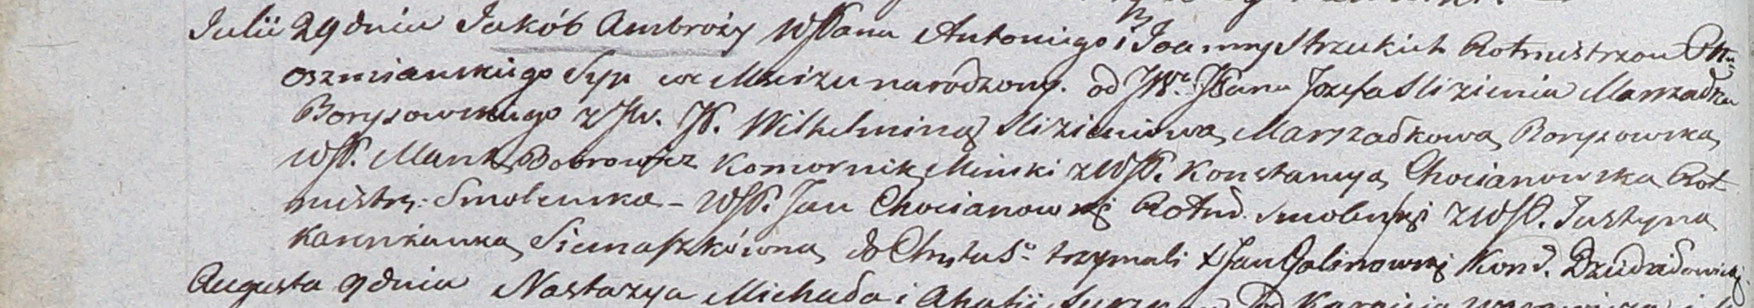 Julii 29 dnia Jakób Ambroży WJPana Antoniego i Joanny Strzukich Rotmistrzow Ptu
oszmianskiego Syn we Mnizu narodzony. od JW. JPana Jozefa Slizienia Marszałka
Borysowskiego z JW. JP. Wilhelminą Slizieniową Marszałkową Borysowską
WJP. Bobrowicz Komornik Minski z WJP. Konstancyą Chocianowską Rot-
mistrz: Smolenską - WJP. Jan Chocianowski Rotm. Smolenski z WJP. Justyną
Siemaszkówną do Chrztu S° trzymali X Jan Galinowski Kond. Dziedziłowicki
Augusta 9 dnia Nastazya Michała i Ahafii